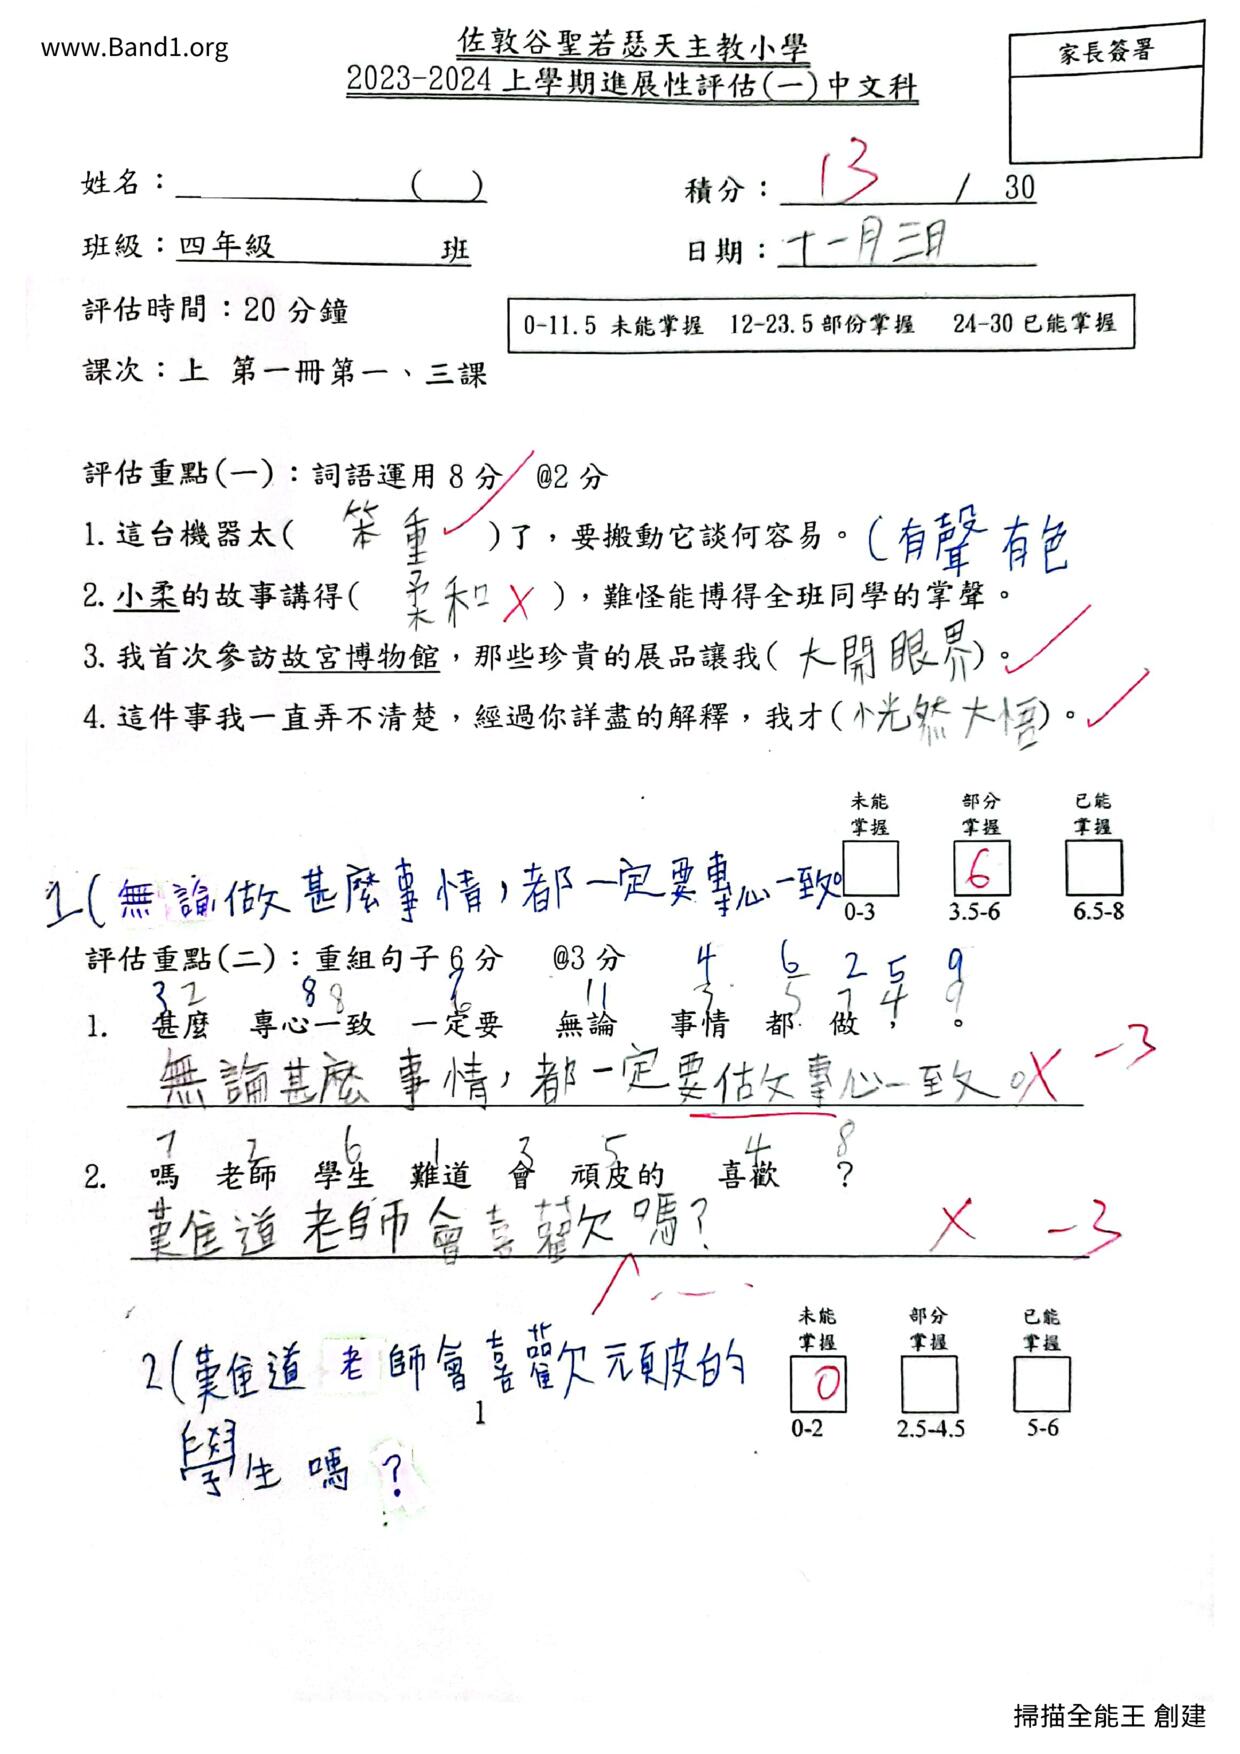 www.Band1.org
佐敦谷聖若瑟天主教小學
2023-2024 上學期進展性評估(一)中文科
家長簽署
姓名：( )
積分：13 / 30
班級：四年級 班
日期：十一月三日
評估時間：20 分鐘
0-11.5 未能掌握 12-23.5 部份掌握 24-30 已能掌握
課次：上 第一冊第一、三課
評估重點(一)：詞語運用 8 分 @2 分
1. 這台機器太( 笨重 )了，要搬動它談何容易。(有聲有色
2. 小柔的故事講得( 柔和 )，難怪能博得全班同學的掌聲。
3. 我首次參訪故宮博物館，那些珍貴的展品讓我( 大開眼界 )。
4. 這件事我一直弄不清楚，經過你詳盡的解釋，我才( 恍然大悟 )。
未能掌握 部分掌握 已能掌握
6
0-3 3.5-6 6.5-8
1(無論做甚麼事情，都一定要專心一致。
評估重點(二)：重組句子 6 分 @3 分
4 6 2 5 9
3 2 8 8 7 6 11 3 5 7 4 9
1. 甚麼 專心一致 一定要 無論 事情 都 做 ， 。
無論甚麼事情，都一定要做專心一致。 -3
7 2 6 1 3 5 4 8
2. 嗎 老師 學生 難道 會 頑皮的 喜歡 ？
難道老師會喜歡嗎？ -3
未能掌握 部分掌握 已能掌握
0
0-2 2.5-4.5 5-6
2(難道老師會喜歡頑皮的
學生嗎？
1
掃描全能王 創建